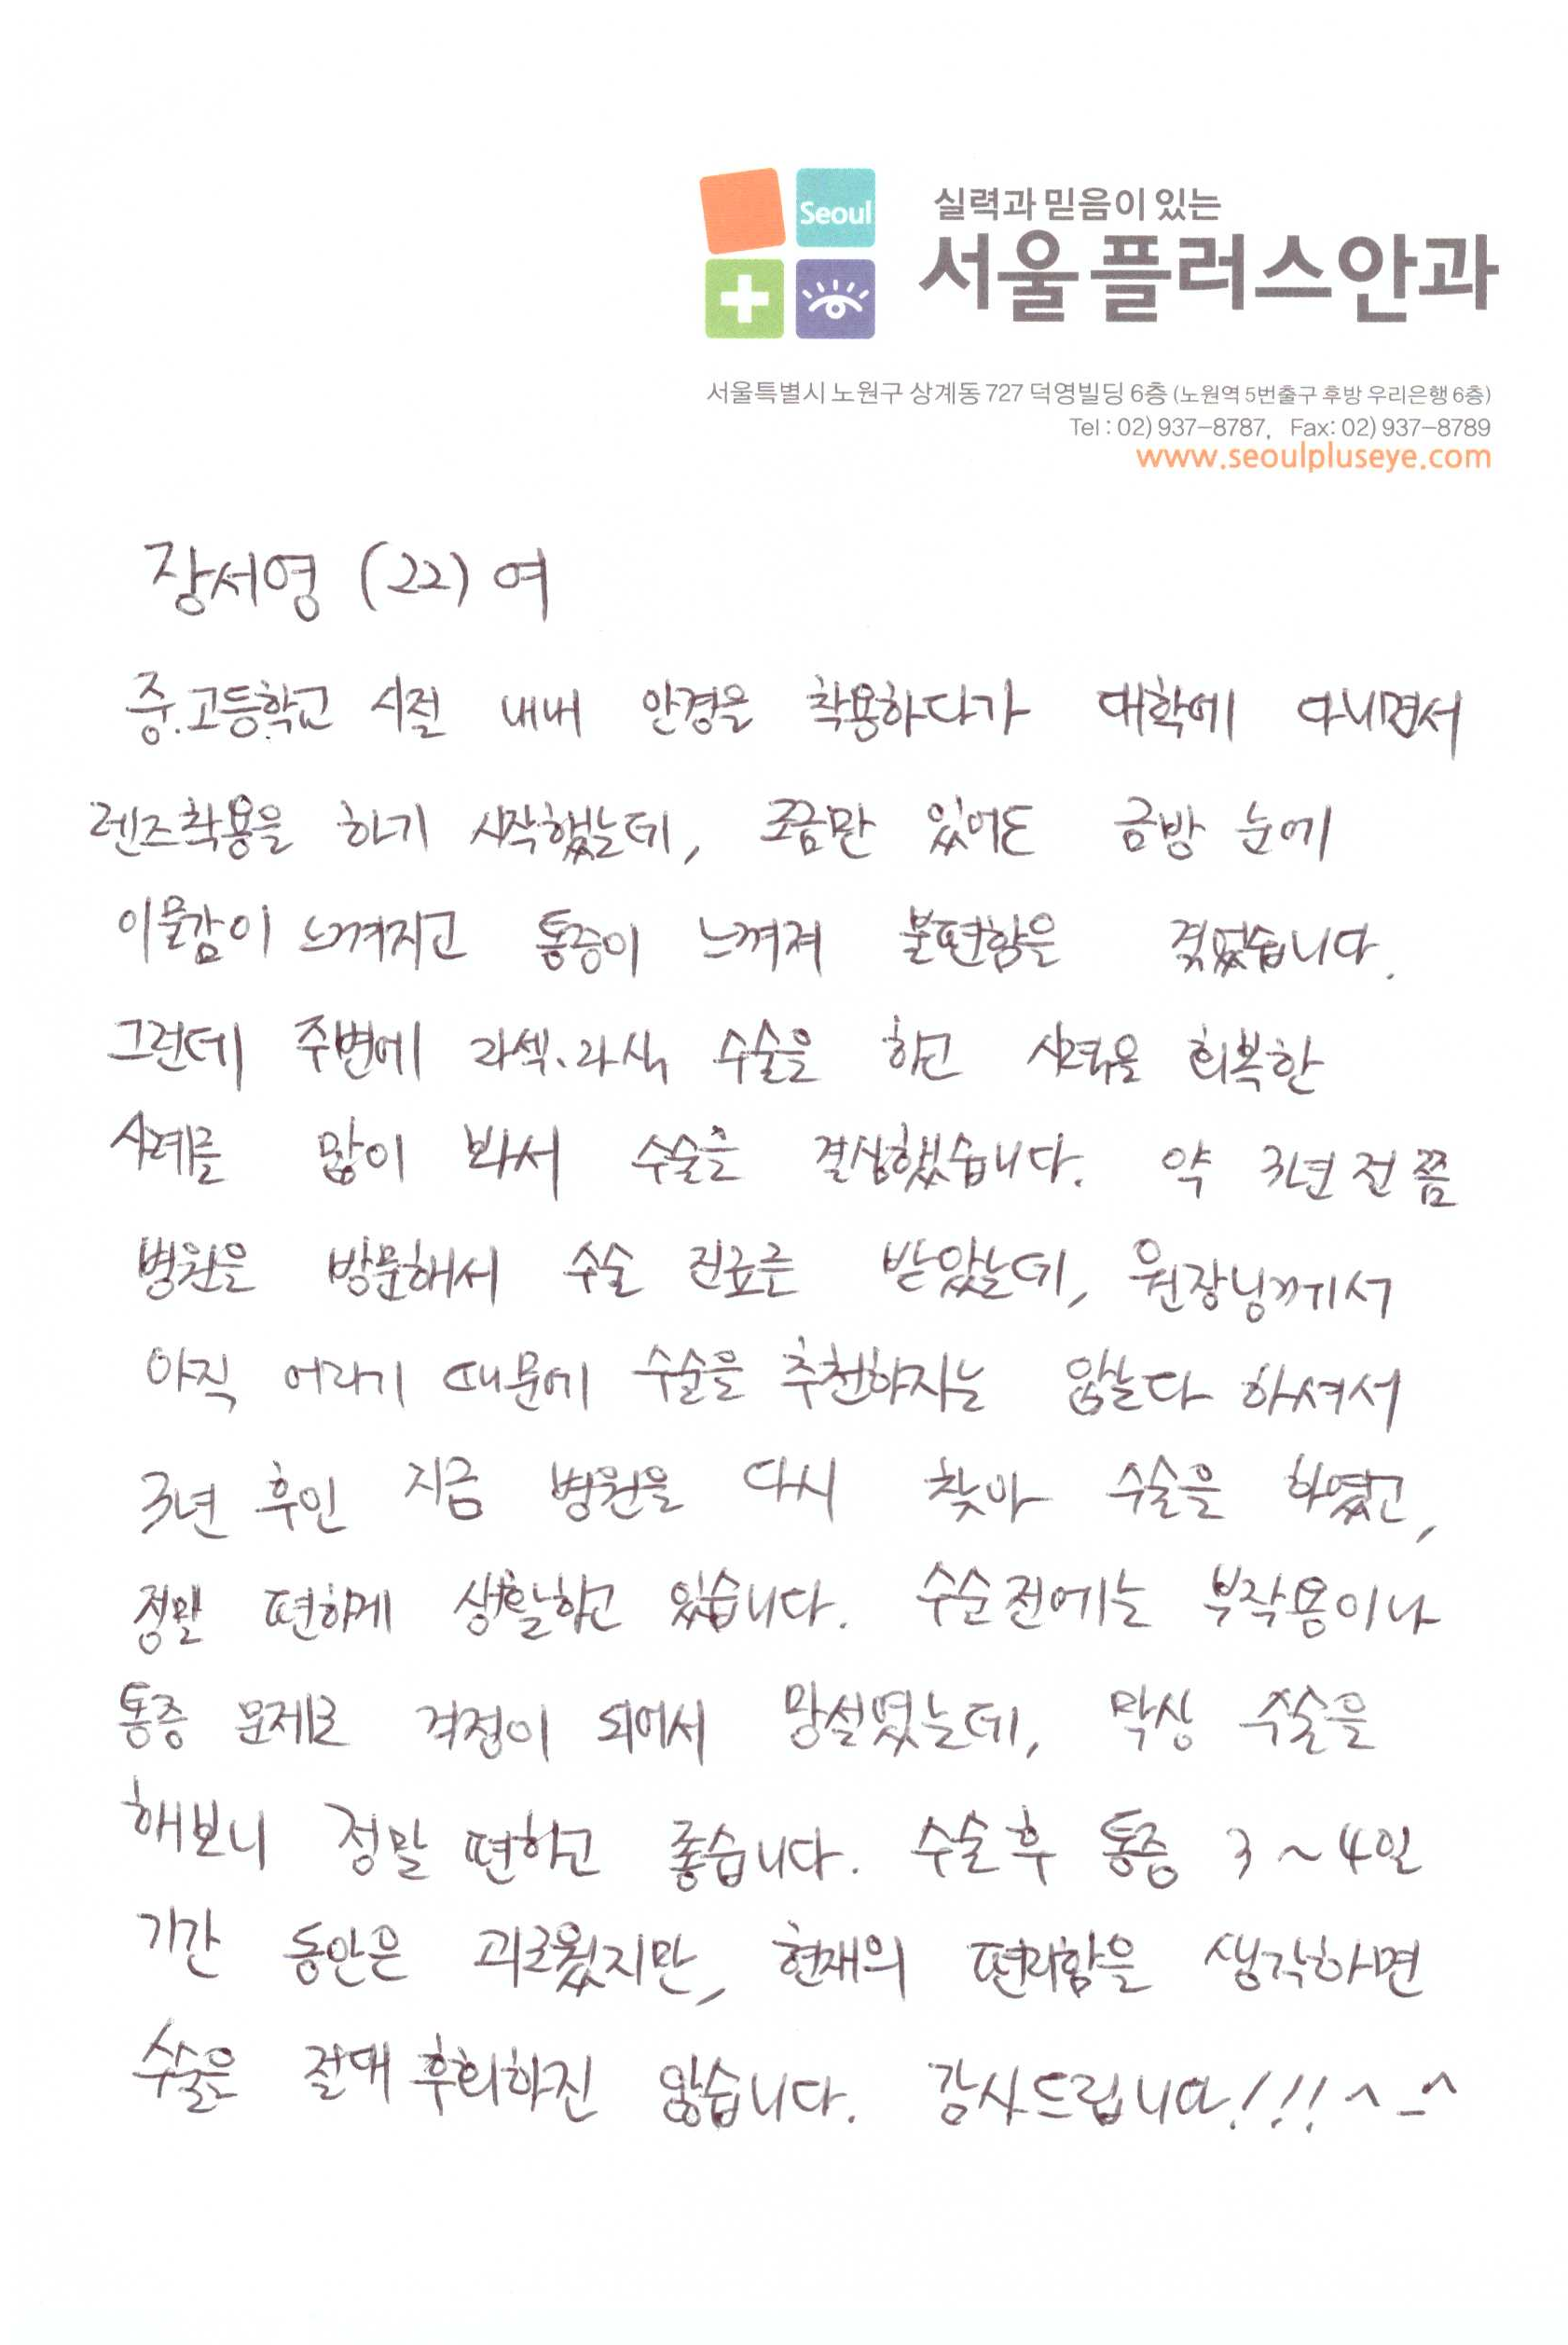 Seoul
실력과 믿음이 있는
서울플러스안과
서울특별시 노원구 상계동 727 덕영빌딩 6층 (노원역 5번출구 후방 우리은행 6층)
Tel : 02) 937-8787, Fax: 02) 937-8789
www.seoulpluseye.com
장서영 (22) 여
중.고등학교 시절 내내 안경을 착용하다가 대학에 다니면서
렌즈착용을 하기 시작했는데, 조금만 있어도 금방 눈에
이물감이 느껴지고 통증이 느껴져 불편함을 겪었습니다.
그런데 주변에 라섹.라식 수술을 하고 시력을 회복한
사례를 많이 봐서 수술을 결심했습니다. 약 3년 전 쯤
병원을 방문해서 수술 진료를 받았는데, 원장님께서
아직 어리기 때문에 수술을 추천하지는 않는다 하셔서
3년 후인 지금 병원을 다시 찾아 수술을 하였고,
정말 편하게 생활하고 있습니다. 수술 전에는 부작용이나
통증 문제로 걱정이 되어서 망설였는데, 막상 수술을
해보니 정말 편하고 좋습니다. 수술 후 통증 3~4일
기간 동안은 괴로웠지만, 현재의 편리함을 생각하면
수술은 절대 후회하진 않습니다. 감사드립니다!!! ^_^